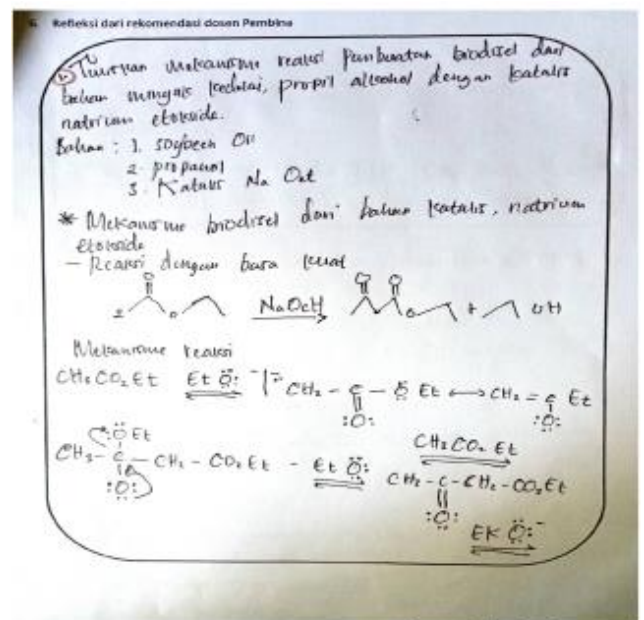 6. Refleksi dari rekomendasi dosen Pembina
Tuliskan mekanisme reaksi pembuatan biodisel dari
bahan minyak kedelai, propil alkohol dengan katalis
natrium etoksida.
Bahan : 1. soybeen Oil
2. propanol
3. Katalis Na Oet
* Mekanisme biodisel dari bahan katalis, natrium
etoksida
- Reaksi dengan basa kuat
O O O
2 O NaOEt O + OH
Mekanisme reaksi
CH3CO2Et Et Ö: CH2 - C - Ö Et ↔ CH2 = C Et
:O: :Ö:
:ÖEt CH3CO2Et
CH3 - C - CH2 - CO2Et - Et Ö: CH3 - C - CH2 - CO2Et
:Ö: :O:
Et Ö:-